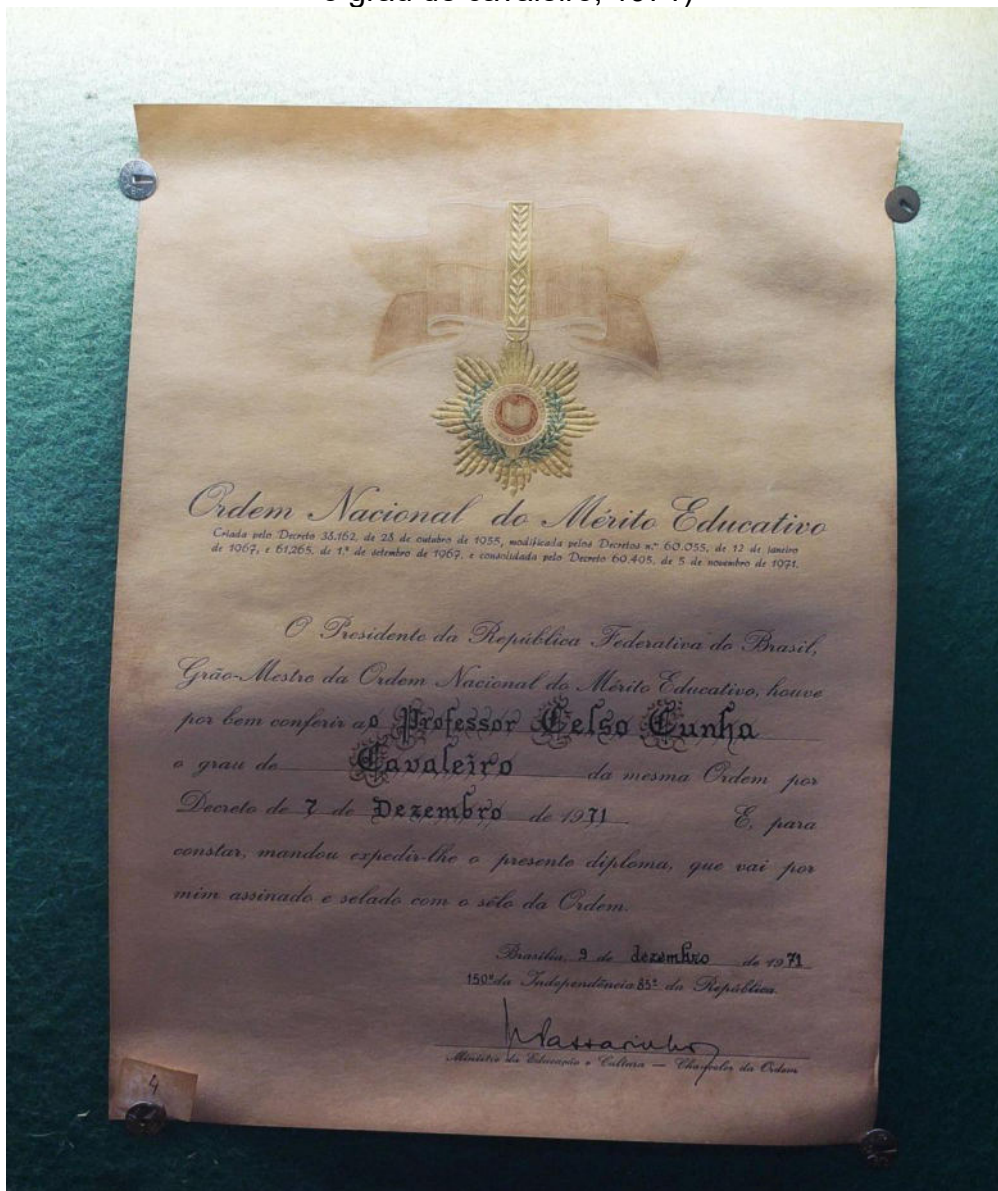 o grau de cavaleiro, 1971)
BRASIL
Ordem Nacional do Mérito Educativo
Criada pelo Decreto 38.162, de 28 de outubro de 1955, modificada pelos Decretos n.os 60.055, de 12 de janeiro
de 1967, e 61.265, de 1.º de setembro de 1967, e consolidada pelo Decreto 69.405, de 5 de novembro de 1971.
O Presidente da República Federativa do Brasil,
Grão-Mestre da Ordem Nacional do Mérito Educativo, houve
por bem conferir ao Professor Celso Cunha
o grau de Cavaleiro da mesma Ordem por
Decreto de 7 de Dezembro de 1971. E, para
constar, mandou expedir-lhe o presente diploma, que vai por
mim assinado e selado com o sêlo da Ordem.
Brasília, 9 de dezembro de 1971
150º da Independência 83º da República.
Ministro da Educação e Cultura — Chanceler da Ordem
4